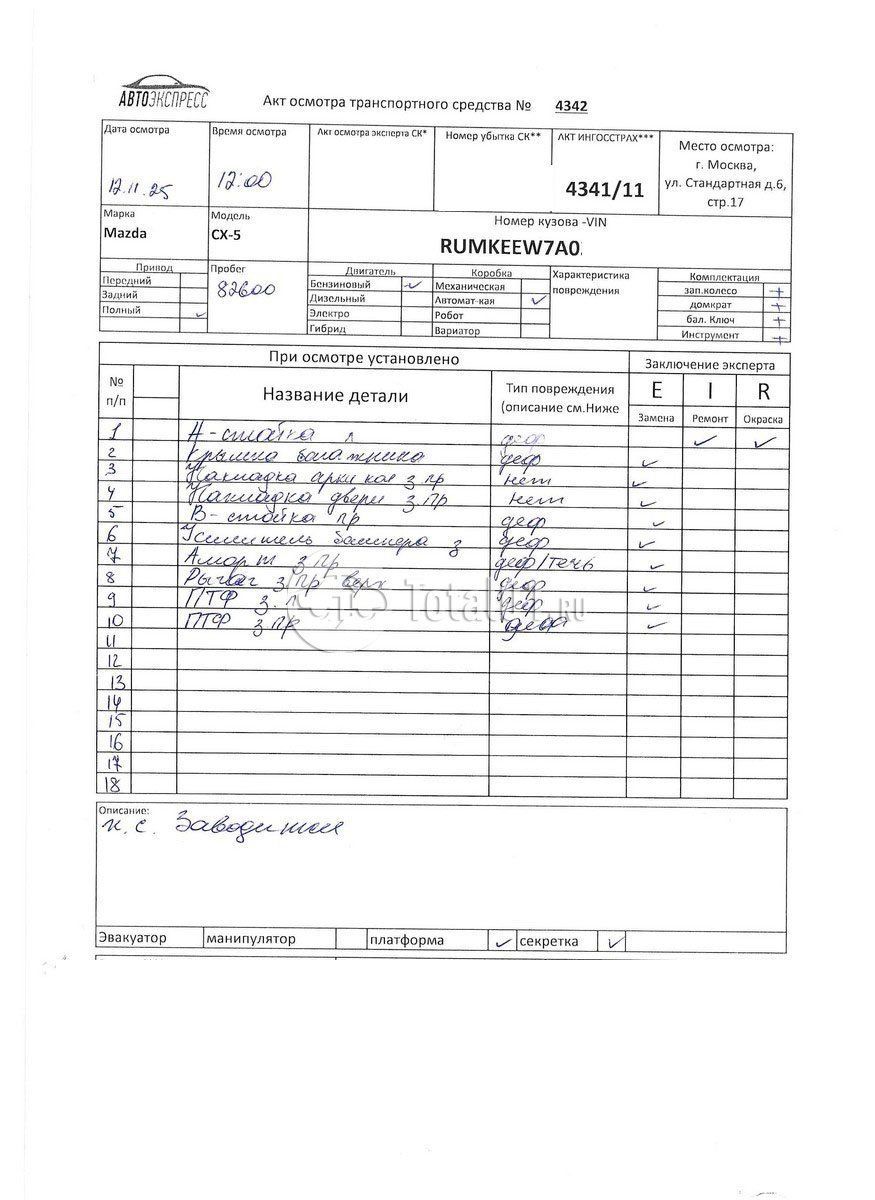 АВТОЭКСПРЕСС
Акт осмотра транспортного средства № 4342
Дата осмотра
12.11.25
Время осмотра
12:00
Акт осмотра эксперта СК*
Номер убытка СК**
АКТ ИНГОССТРАХ***
4341/11
Место осмотра:
г. Москва,
ул. Стандартная д.6,
стр.17
Марка
Mazda
Модель
CX-5
Номер кузова -VIN
RUMKEEW7A0
Привод
Передний
Задний
Полный ✓
Пробег
82600
Двигатель
Бензиновый ✓
Дизельный
Электро
Гибрид
Коробка
Механическая
Автомат-кая ✓
Робот
Вариатор
Характеристика
повреждения
Комплектация
зап.колесо +
домкрат +
бал. Ключ +
Инструмент +
При осмотре установлено
Заключение эксперта
№
п/п
Название детали
Тип повреждения
(описание см.Ниже
E I R
Замена Ремонт Окраска
1 А-стойка л деф ✓ ✓
2 Крышка багажника деф ✓
3 Накладка арки кол з.пр нет ✓
4 Накладка двери з.пр нет ✓
5 В-стойка пр деф ✓
6 Усилитель бампера з деф ✓
7 Аморт з пр деф/течь ✓
8 Рычаг з пр верх деф ✓
9 ПТФ з.л деф ✓
10 ПТФ з.пр деф ✓
11
12
13
14
15
16
17
18
TotalDV.RU
Описание:
н.с. Заводится
Эвакуатор манипулятор платформа ✓ секретка ✓